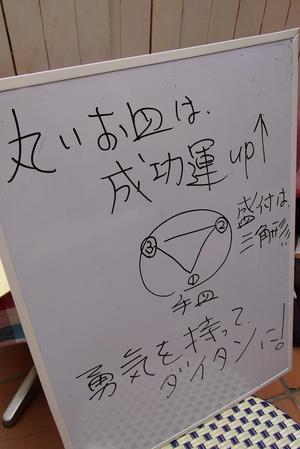 丸いお皿は、
成功運up↑
盛付は、
三角形!!
③ ②
①
手皿
勇気を持って
ダイタンに!